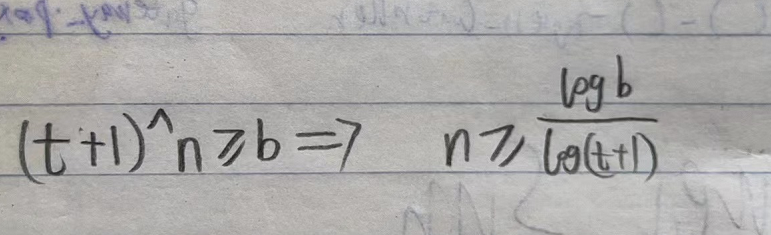 (t+1)^n ≥ b => n ≥ log b / log(t+1)